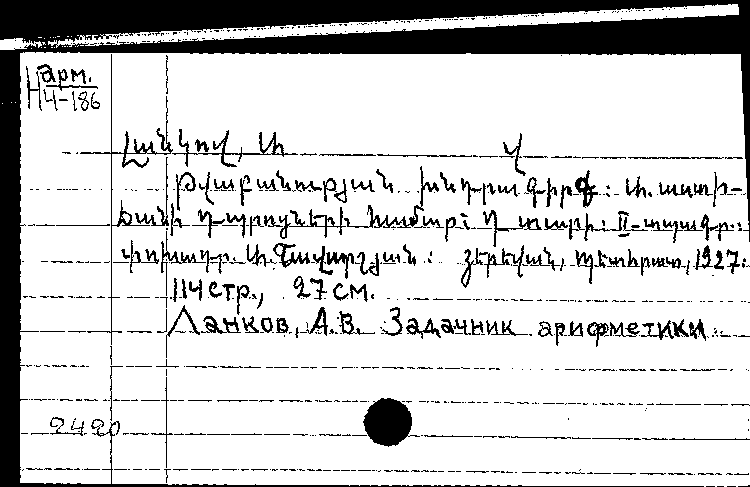 арм.
H 4-186
Լանկով, Ա. Վ
Թվաբանության խնդրագիրք: Ա. աստի-
ճանի դպրոցների համար: Դ տարի: II-տպագր.:
փոխադր. Ա. Շավարշյան: Յերեվան, պետհրատ, 1927:
114 стр., 27 см.
Ланков, А.В. Задачник арифметики.
2420